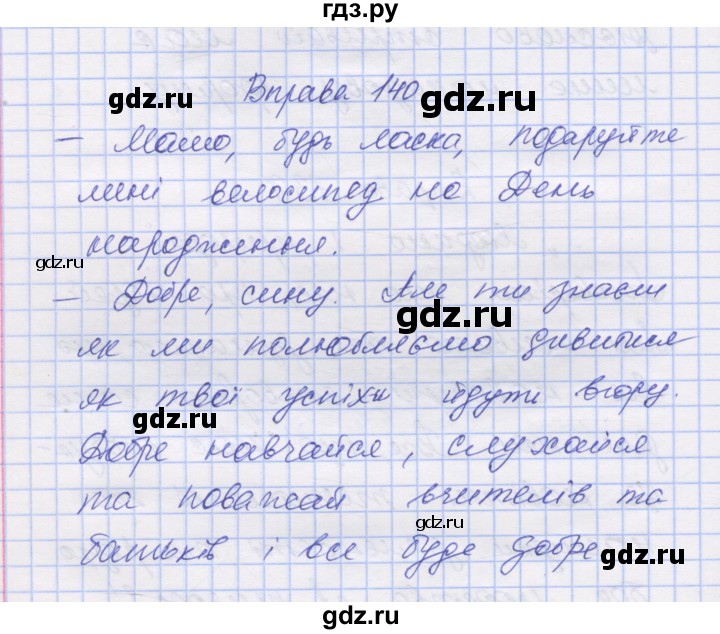 гдз.ру
Вправа 140
gdz.ru
gdz.ru
— Мамо, будь ласка, подаруйте
мені велосипед на День
народження.
gdz.ru
gdz.ru
— Добре, сину. Але ти знаєш
gdz.ru
як ми полюбляємо дивитися
як твої успіхи йдуть вгору.
gdz.ru
Добре навчайся, слухайся
та поважай вчителів та
gdz.ru
батьків і все буде добре
gdz.ru
gdz.ru